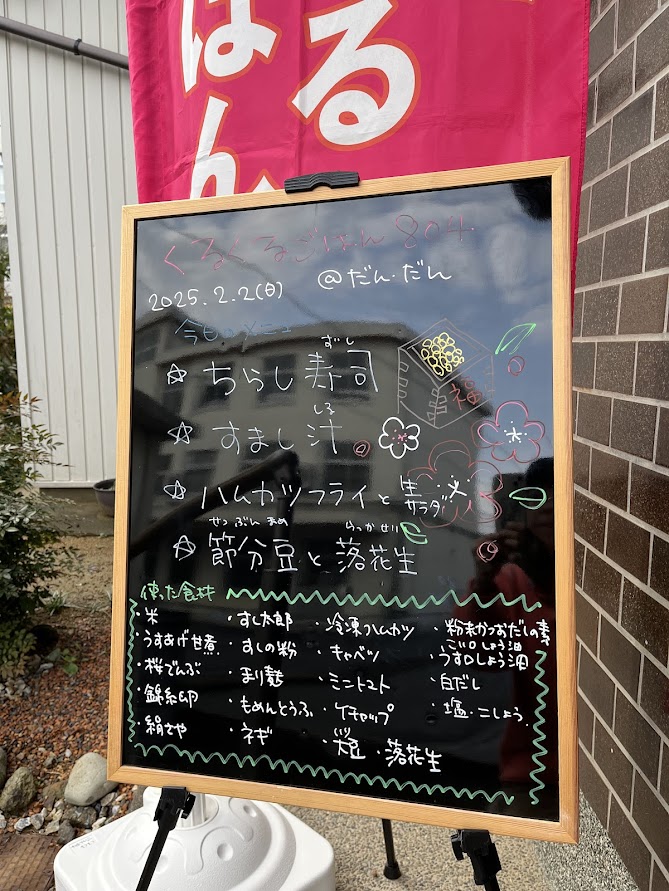 はん
る
くるくるごはん 804
@だん・だん
2025.2.2(日)
今日のメニュー
☆ ちらし寿司
ずし
☆ すまし汁
しる
☆ ハムカツフライと生サラダ
☆ 節分豆と落花生
せつぶんまめ
らっかせい
福
使った食材
・米
・うすあげ甘煮
・桜でんぶ
・錦糸卵
・絹さや
・すし太郎
・すしの粉
・まり麩
・もめんとうふ
・ネギ
・冷凍ハムカツ
・キャベツ
・ミニトマト
・ケチャップ
・大豆
・落花生
・粉末かつおだしの素
こい口しょう油
・うす口しょう油
・白だし
・塩・こしょう